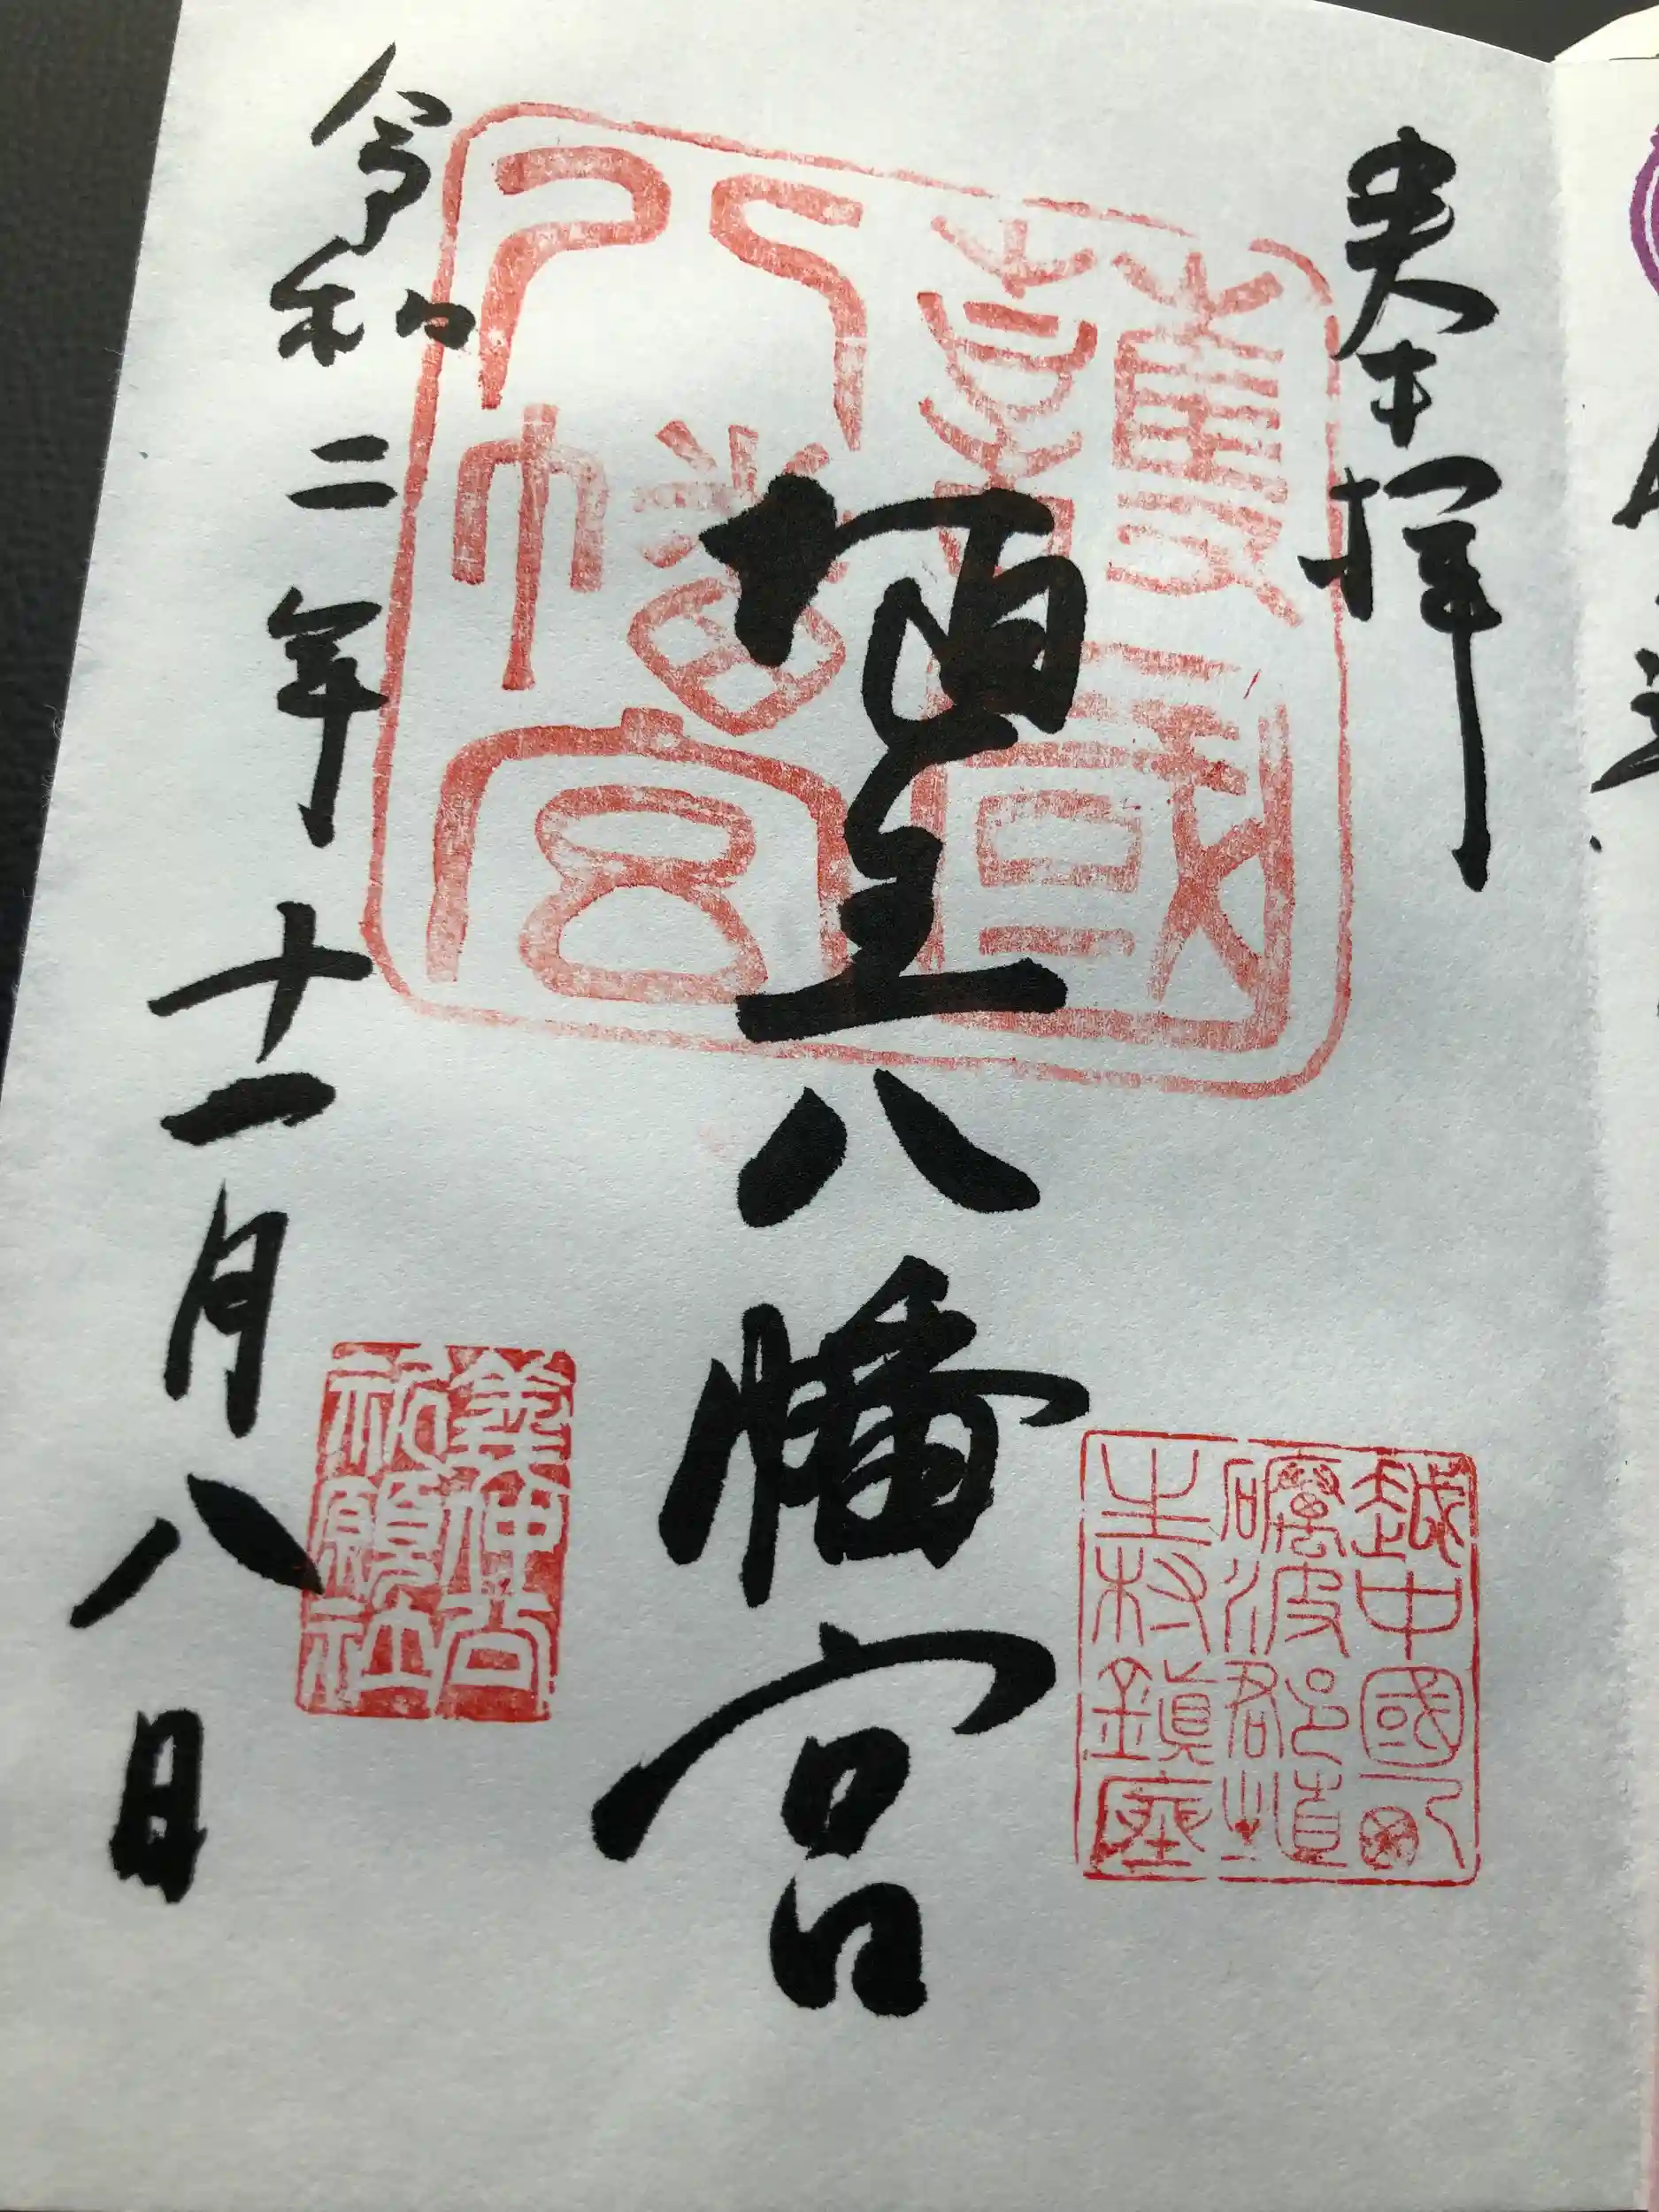 奉拝
護國
八幡宮
埴生八幡宮
越中國
礪波郡埴
生村鎮座
令和二年十一月八日
義仲公
祈願社